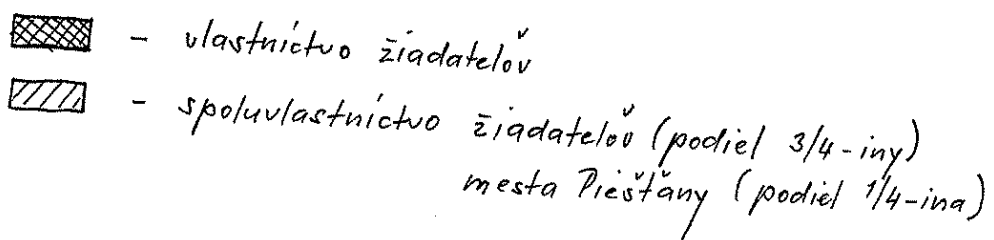 - vlastníctvo žiadateľov
- spoluvlastníctvo žiadateľov (podiel 3/4-iny)
mesta Piešťany (podiel 1/4-ina)